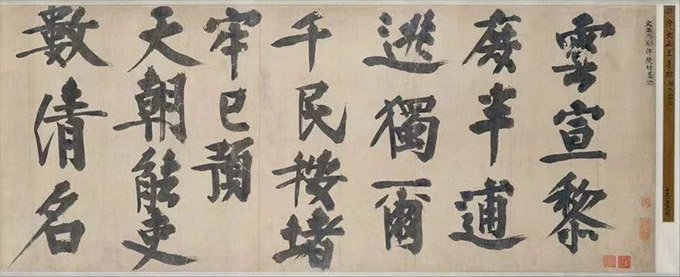 雲宣黎
庶半逋
選獨爾
千民按堵
牢已頌
天朝能吏
數清名